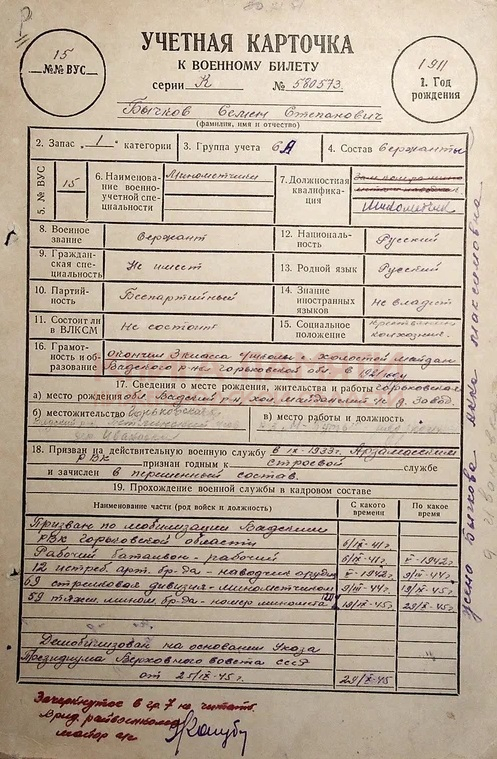 15
№№ ВУС
УЧЕТНАЯ КАРТОЧКА
К ВОЕННОМУ БИЛЕТУ
серии К № 580573.
1911
1. Год рождения
Бычков Семен Степанович
(фамилия, имя и отчество)
2. Запас „1" категории
3. Группа учета 6А
4. Состав сержанты
5. № ВУС
15
6. Наименование военно-учетной специальности
Минометчики
7. Должностная квалификация
Минометчик
8. Военное звание
Сержант
12. Национальность
Русский
9. Гражданская специальность
Не имеет
13. Родной язык
Русский
10. Партийность
Беспартийный
14. Знание иностранных языков
Не владеет
11. Состоит ли в ВЛКСМ
Не состоит
15. Социальное положение
колхозник
16. Грамотность и образование
окончил 3 класса с. Холостой майдан
Вадского р-на горьковской обл. в 1921 году
17. Сведения о место рождения, жительства и работы горьковская
а) место рождения обл. Вадский р-н, хол. майданский д. Завод.
б) местожительство
в) место работы и должность
18. Призван на действительную военную службу в IX-1933г. Арзамасским
РВК признан годным к строевой службе
и зачислен в переменный состав.
19. Прохождение военной службы в кадровом составе
Наименование части (род войск и должность)
С какого времени
По какое время
Призван по мобилизации Вадским
РВК горьковской области
Рабочий батальон - рабочий
V-1942г.
12 истреб. арт. бр-да - наводчик орудия
V-1942г.
69 стрелковая дивизия - минометчиком
59 тяжел. миномет. бр-да - номер миномета
Демобилизован на основании Указа
Президиума Верховного совета СССР
от 25/IX-45г.
Зачеркнутое в гр. 7 не читать.
Врид. райвоенкома
майор
жена Бычкова Анна Максимовна